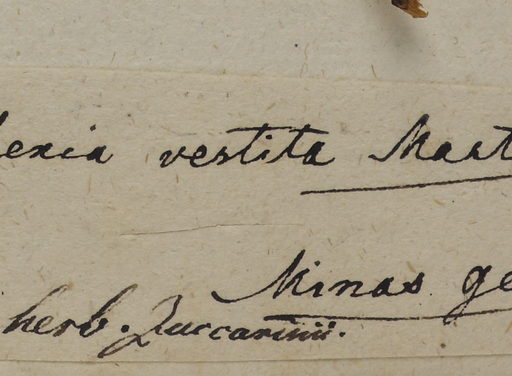 lexia vestita Mart
Minas ge
herb. Zuccarinii.